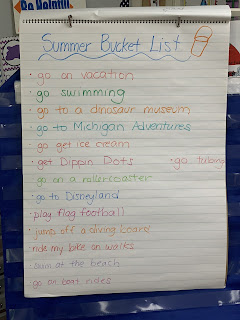 Be Helpful!
Summer Bucket List
· go on vacation
· go swimming
· go to a dinosaur museum
· go to Michigan Adventures
· go get ice cream
· get Dippin Dots · go tubing
· go on a rollercoaster
· go to Disneyland
· play flag football
· jump off a diving board
· ride my bike on walks
· at the beach
· go on boat rides